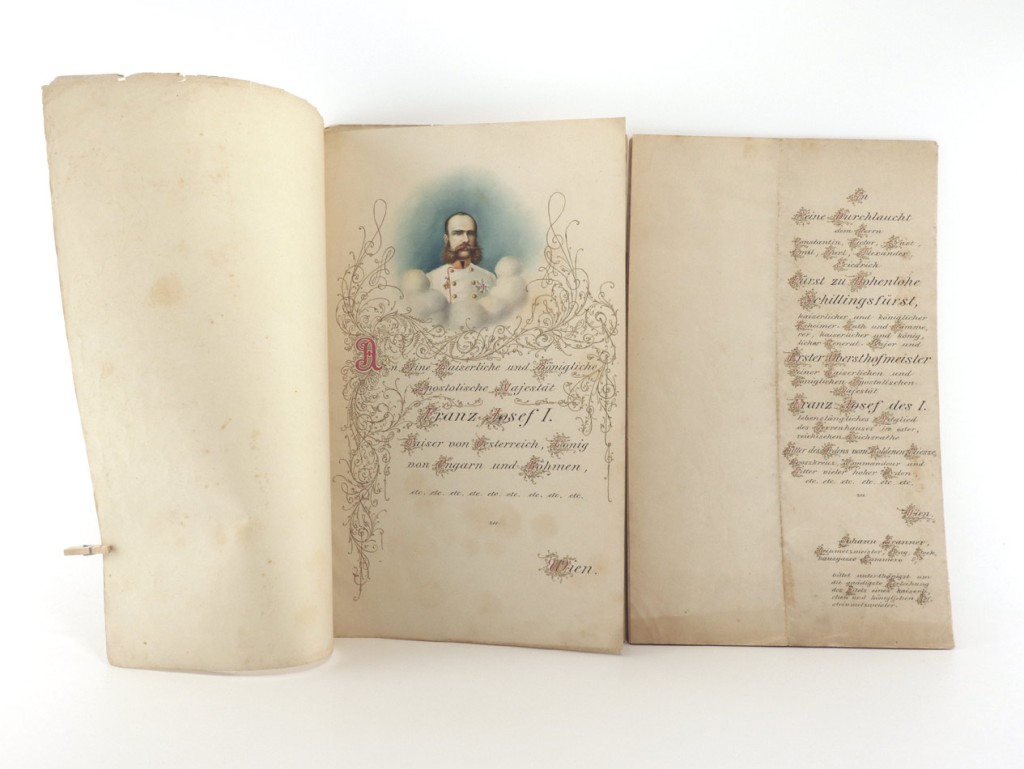 An Seine Kaiserliche und Königliche
Apostolische Majestät
Franz Josef I.
Kaiser von Österreich, König
von Ungarn und Böhmen,
etc. etc. etc. etc. etc. etc. etc. etc. etc.
zu
Wien.
An
Seine Durchlaucht
dem Herrn
Constantin, Victor, Ernst,
Emil, Carl, Alexander,
Friedrich
Fürst zu Hohenlohe
Schillingsfürst,
kaiserlicher und königlicher
Geheimer-Rath und Kämme,
rer, kaiserlicher und könig,
licher General-Major und
Erster Obersthofmeister
Seiner Kaiserlichen und
Königlichen Apostolischen
Majestät
Franz Josef des I.
lebenslängliches Mitglied
des Herrenhauses im öster,
reichischen Reichsrathe
Ritter des Ordens vom Goldenen Vliesse,
Grosskreuz, Commandeur und
Ritter vieler hoher Orden
etc. etc. etc. etc. etc. etc.
zu
Wien.
Johann
Steinmetzmeister, Prag,
Nummero
bittet unterthänigst um
die gnädigste Verleihung
des Titels eines kaiserli,
chen und königlichen
steinmetzmeister.